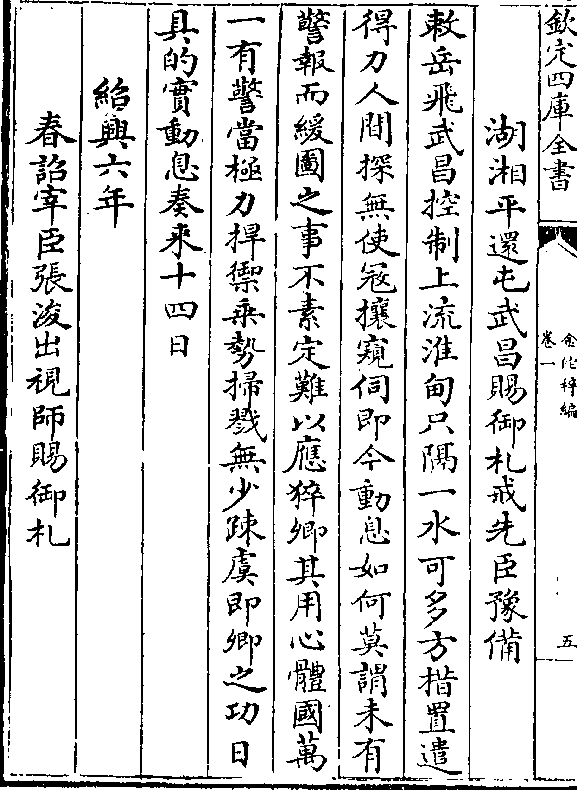 欽定四庫全書
金佗稡編
卷一
五
湖湘平還屯武昌賜御札戒先臣豫備
敕岳飛武昌控制上流淮甸只隔一水可多方措置遣
得力人間探無使寇攘窺伺即今動息如何莫謂未有
警報而緩圖之事不素定難以應猝卿其用心體國萬
一有警當極力捍禦乘勢掃戮無少疎虞即卿之功日
具的實動息奏来十四日
紹興六年
春詔宰臣張浚出視師賜御札